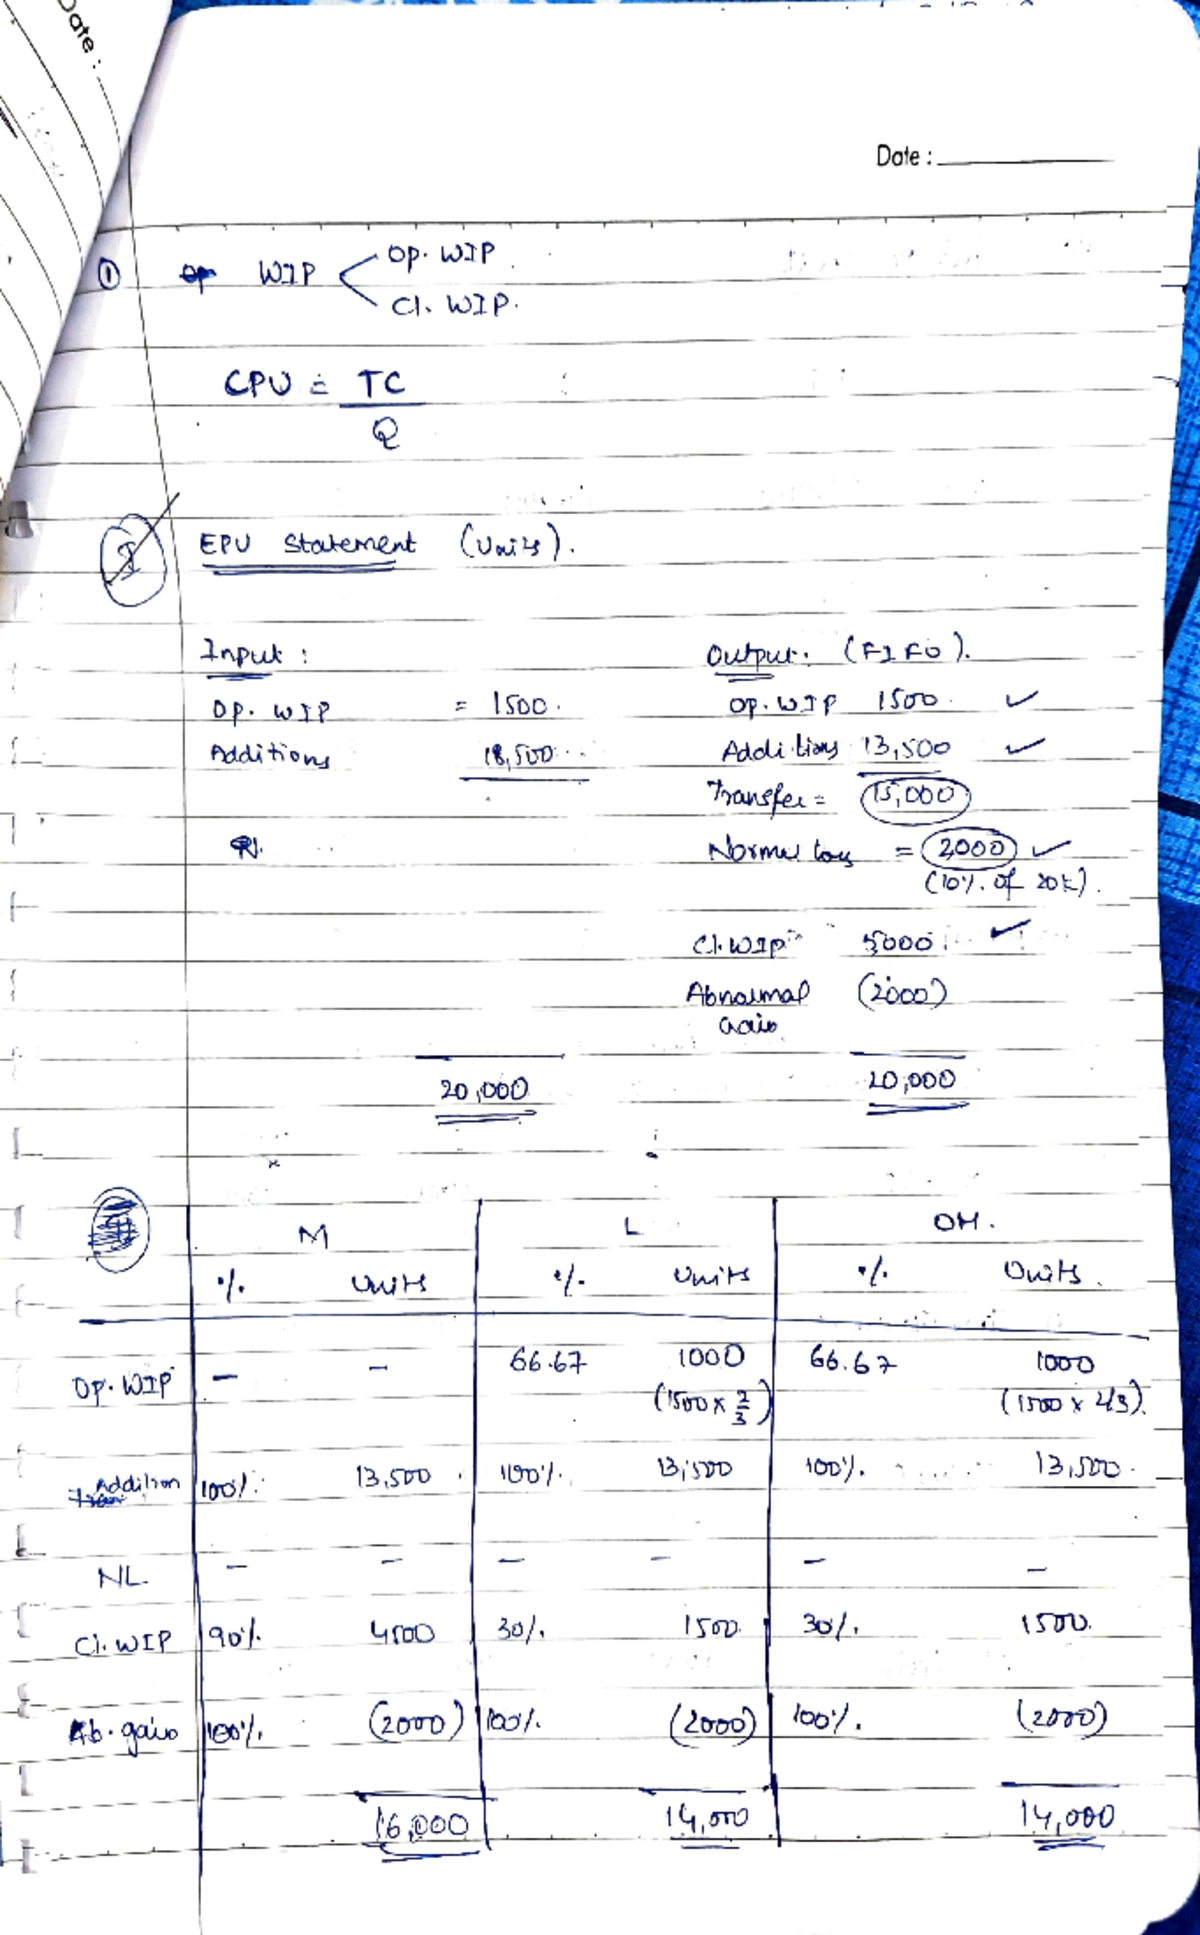 Date :
Date :
① WIP Op. WIP
Cl. WIP.
CPU = TC
Q
I EPU Statement (Units).
Input : Output: (FIFO).
Op. WIP = 1500. Op. WIP 1500 ✓
Additions 18,500 Additions 13,500 ✓
Transfer = 15,000
Normal loss = 2000 ✓
(10%. of 20k).
Cl. WIP 5000 ✓
Abnormal (2000)
Gain
20,000 20,000
M L OH.
%. Units %. Units %. Units.
Op. WIP - - 66.67 1000 66.67 1000
(1500 x 2/3) (1500 x 2/3).
Addition 100%. 13,500 100%. 13,500 100%. 13,500.
NL - - - - - -
Cl. WIP 90%. 4500 30%. 1500 30%. 1500.
Ab. gain 100%. (2000) 100%. (2000) 100%. (2000)
16,000 14,000 14,000